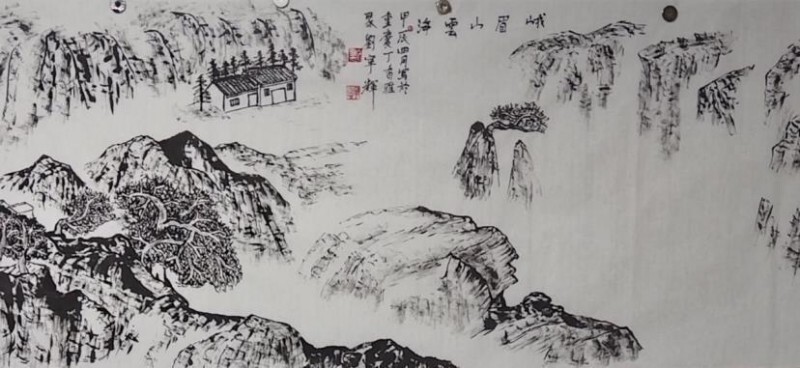 峨眉山雲海
甲辰四月寫於
重慶丁香
劉寧輝